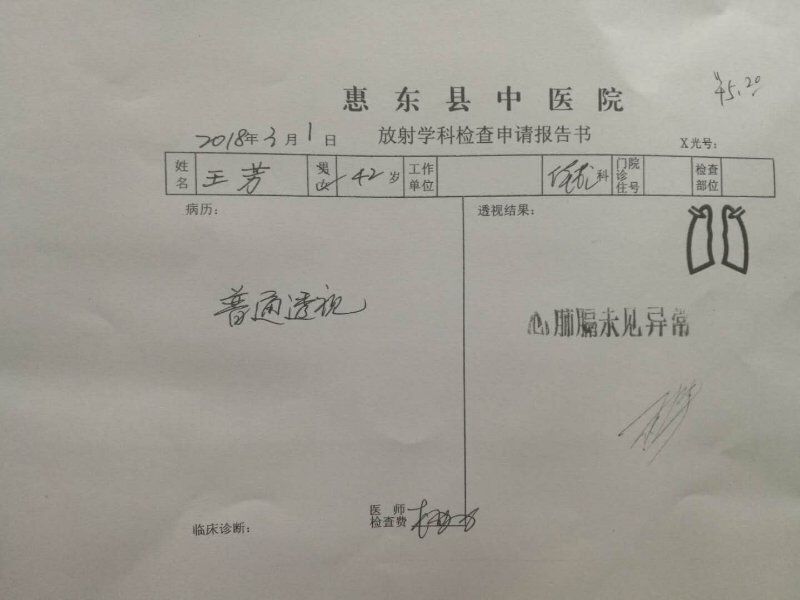 ¥5.20
惠东县中医院
放射学科检查申请报告书
2018年3月1日
X光号：
姓名 王芳 42岁 工作单位 科 门诊住院号 检查部位
病历：
透视结果：
普通透视
心肺膈未见异常
医师
检查费
临床诊断：